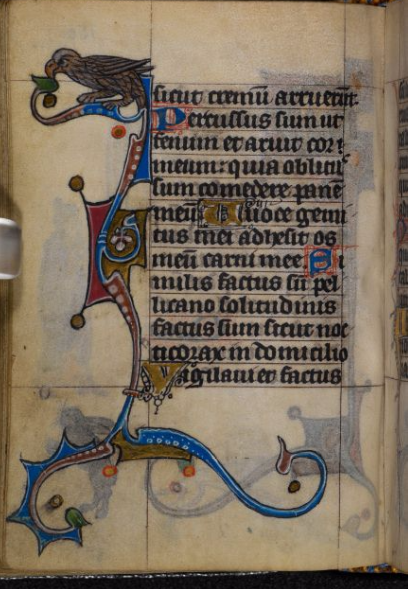 sicut cremiū aruerūt.
Percussus sum ut
fenum et aruit cor
meum: quia oblitꝰ
sum comedere pane
meū A uoce gemi
tus mei adhesit os
meū carni mee Si
milis factus sū pel
licano solitudinis
factus sum sicut noc
ticorax in domicilio
Vigilaui et factus